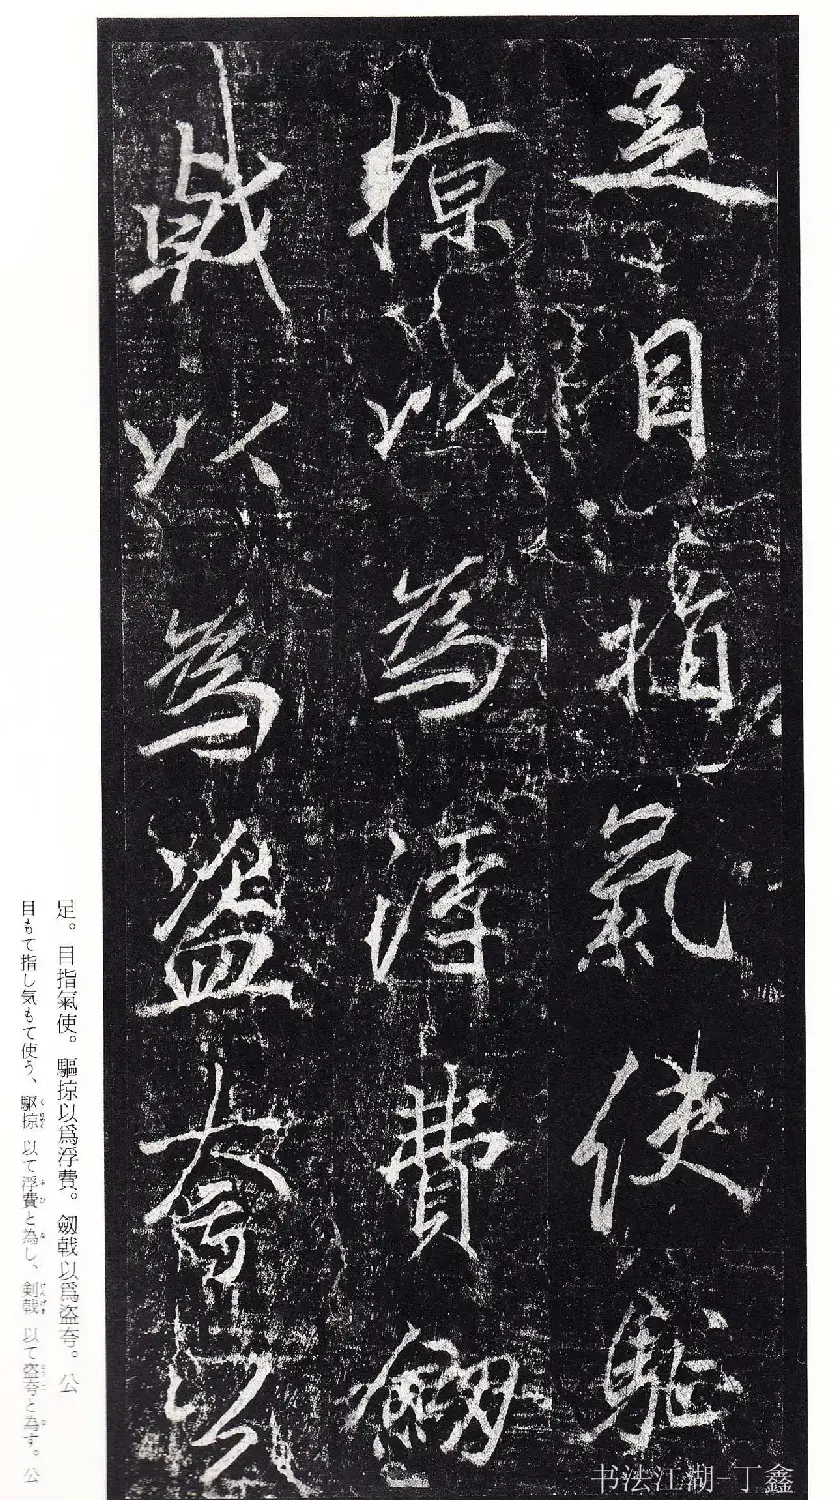 足目指氣使駈
掠以為浮費劒
戟以為盗夸公
足。目指氣使。驅掠以爲浮費。劒戟以爲盗夸。公
目もて指し気もて使う、駆掠以て浮費と為し、剣戟以て盗夸と為す。公
书法江湖-丁鑫